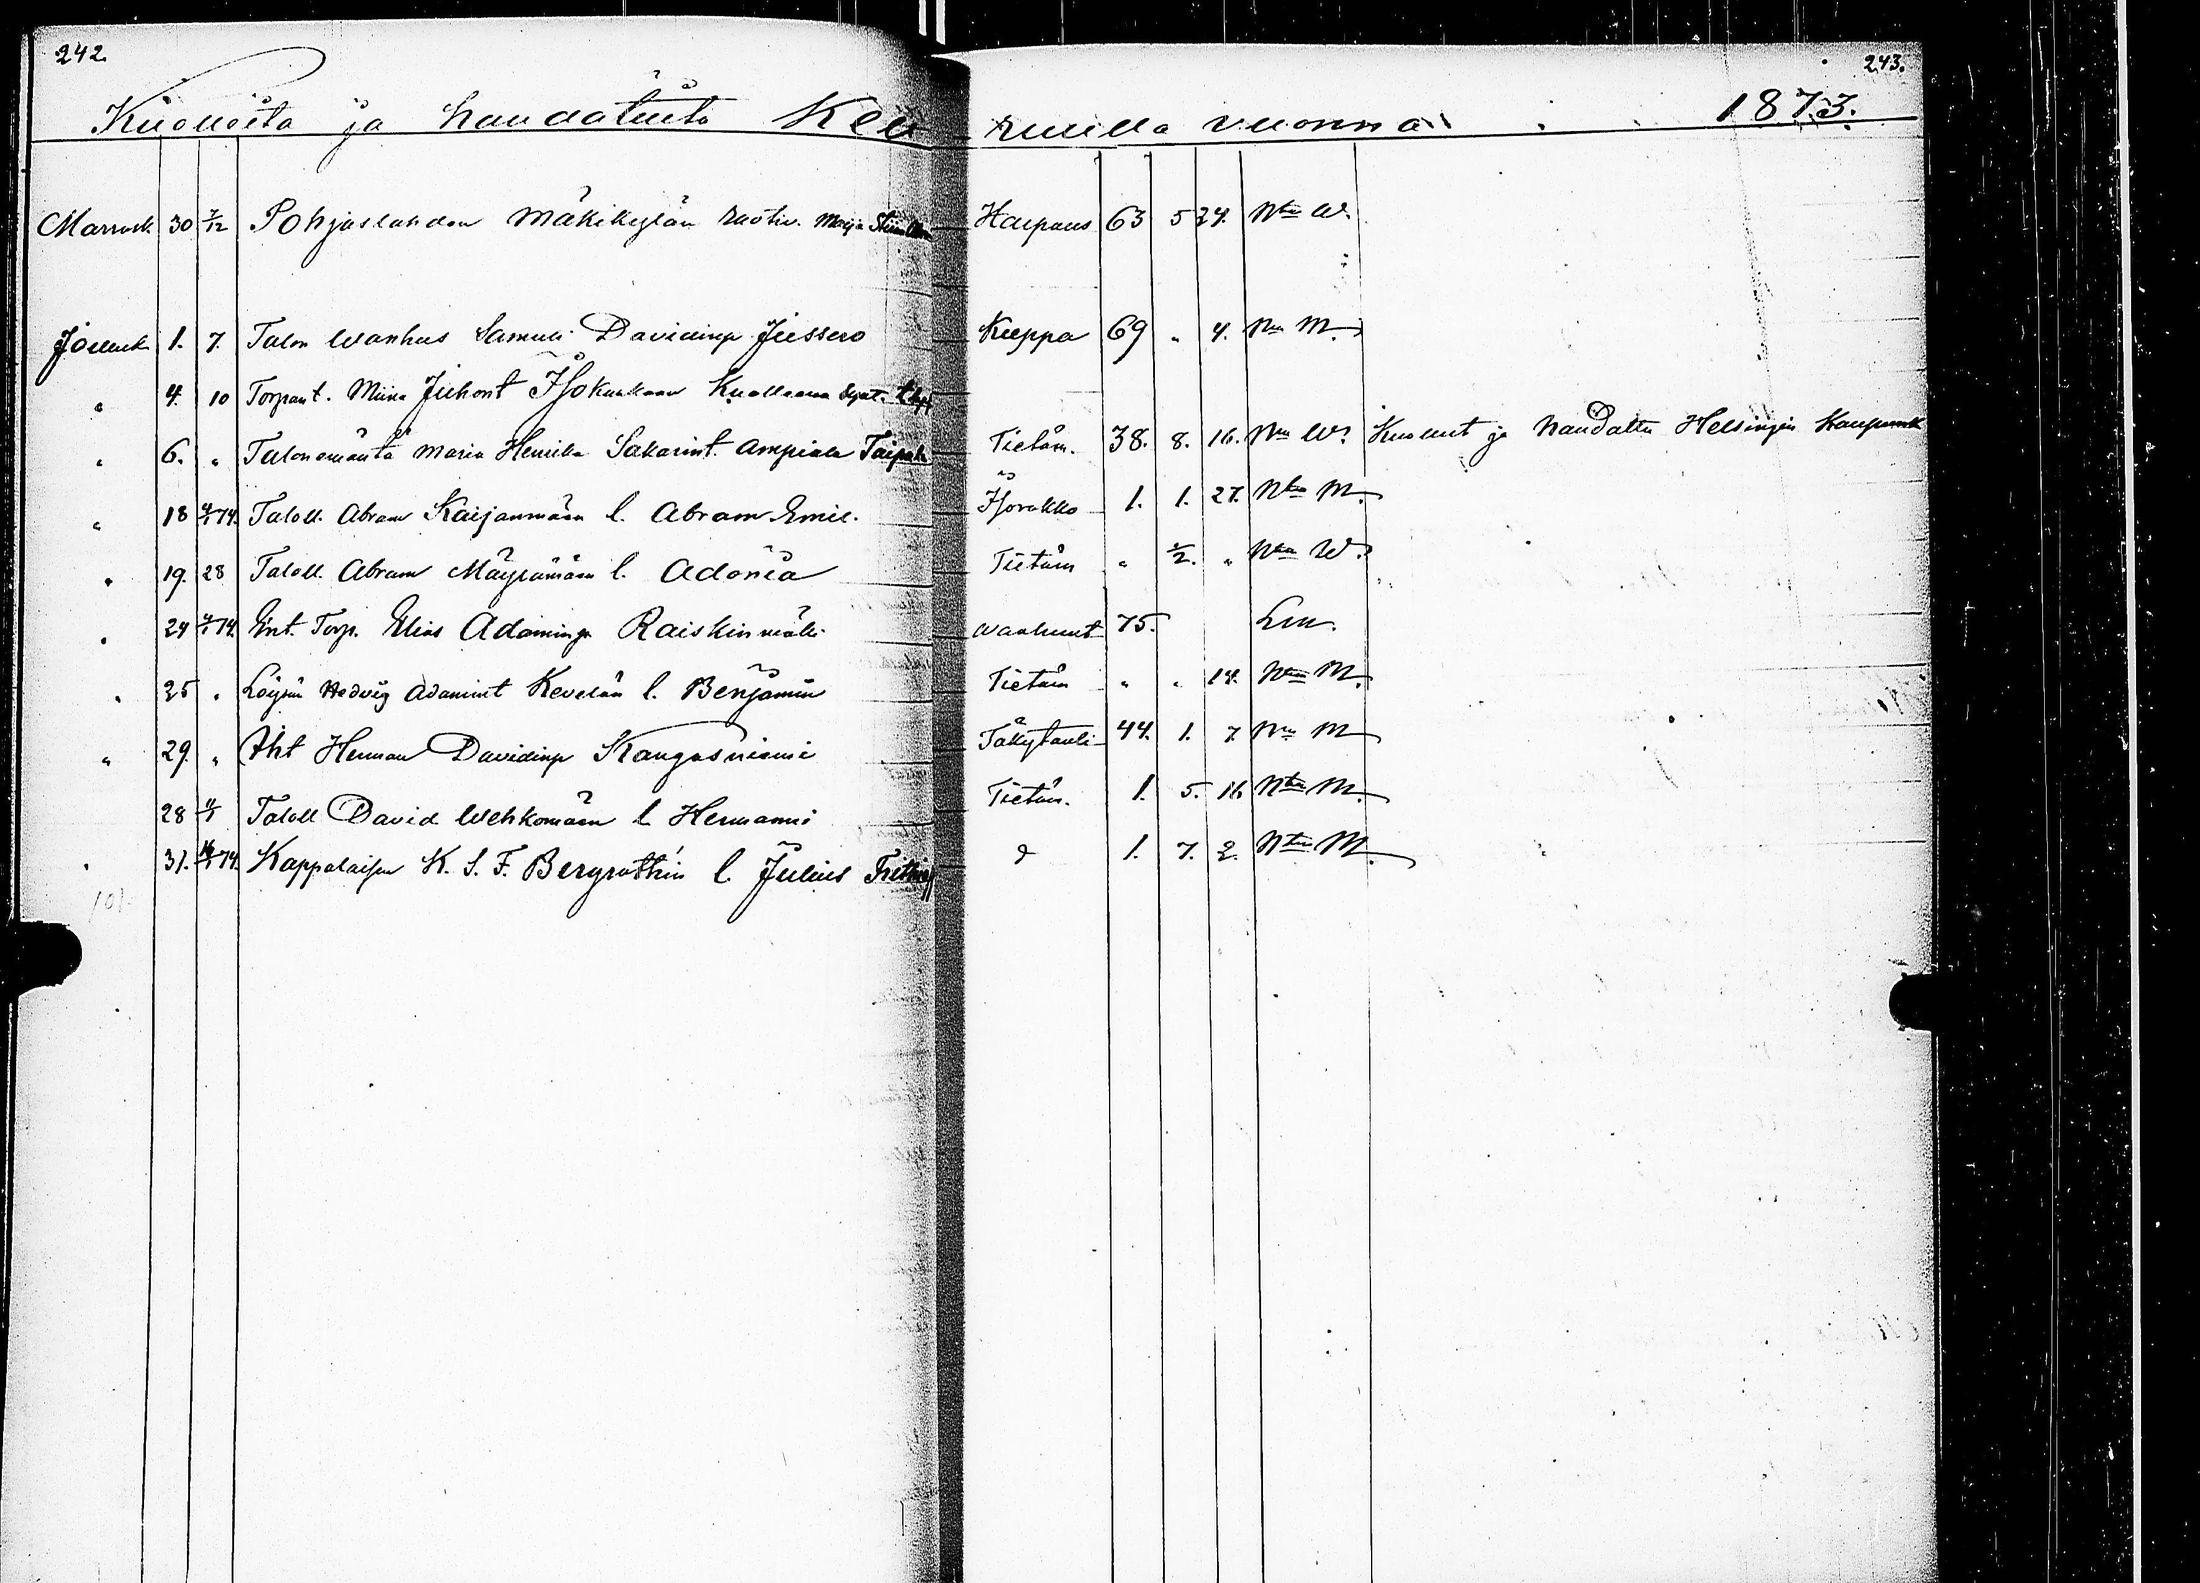 242. 243.
Kuolleita ja haudatuita Keu ruulla vuonna 1873.
Marrask 30 7/12 Pohjaslahden Mäkikylän ruotiv. Maija Haipaus 63 5 24. Ntu W.
Jouluuk 1. 7. Talon wanhus Samuli Davidinp Jussero Kuppa 69 " 4. Nu M.
" 4. 10 Torpant. Miina Juhont
" 6. " Talonemäntä Maria Henrika Sakarint. Ampiala Taipale Tietäm. 38. 8. 16. Nu W. Kuollut ja haudattu Helsingin Kaupunk
" 18 4/1 74. Taloll. Abram Kaijanmään l. Abram Emil. Isorokko 1. 1. 27. Ntu M.
" 19. 28 Taloll. Abram Mäyrämäen l. Adonia Tietäm " 1/2. " Ntu W.
" 24 4/1 74. Ent. Torp. Elias Adaminp. Raiskinmäki wanhuut 75. Lm.
" 25 " Löysän Hedvig Adamint Kevelän l. Benjamin Tietäm " " 14. Ntu M.
" 29. " Itst Herman Davidinp Kangasniemi Täkytauti 44. 1. 7 Nu M
28 11/1 Taloll David Wehkomäen l Hermanni Tietäm. 1. 5. 16 Ntu M.
" 31. 74. Kappalaisen K. S. F. Bergrothin l. Julius d 1. 7. 2. Ntu M.
101